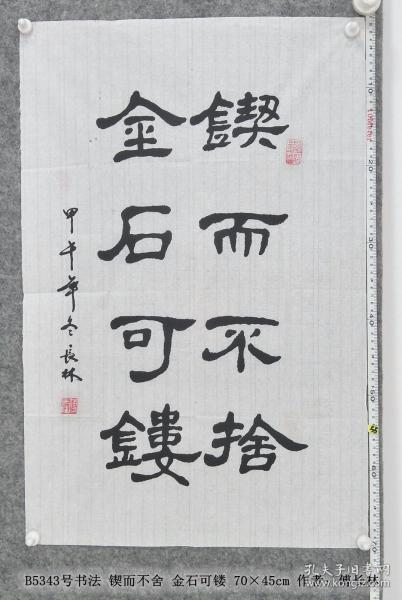 鍥而不捨
金石可鏤
甲午年冬长林
B5343号书法 锲而不舍 金石可镂 70×45cm 作者：傅长林
孔夫子旧书网